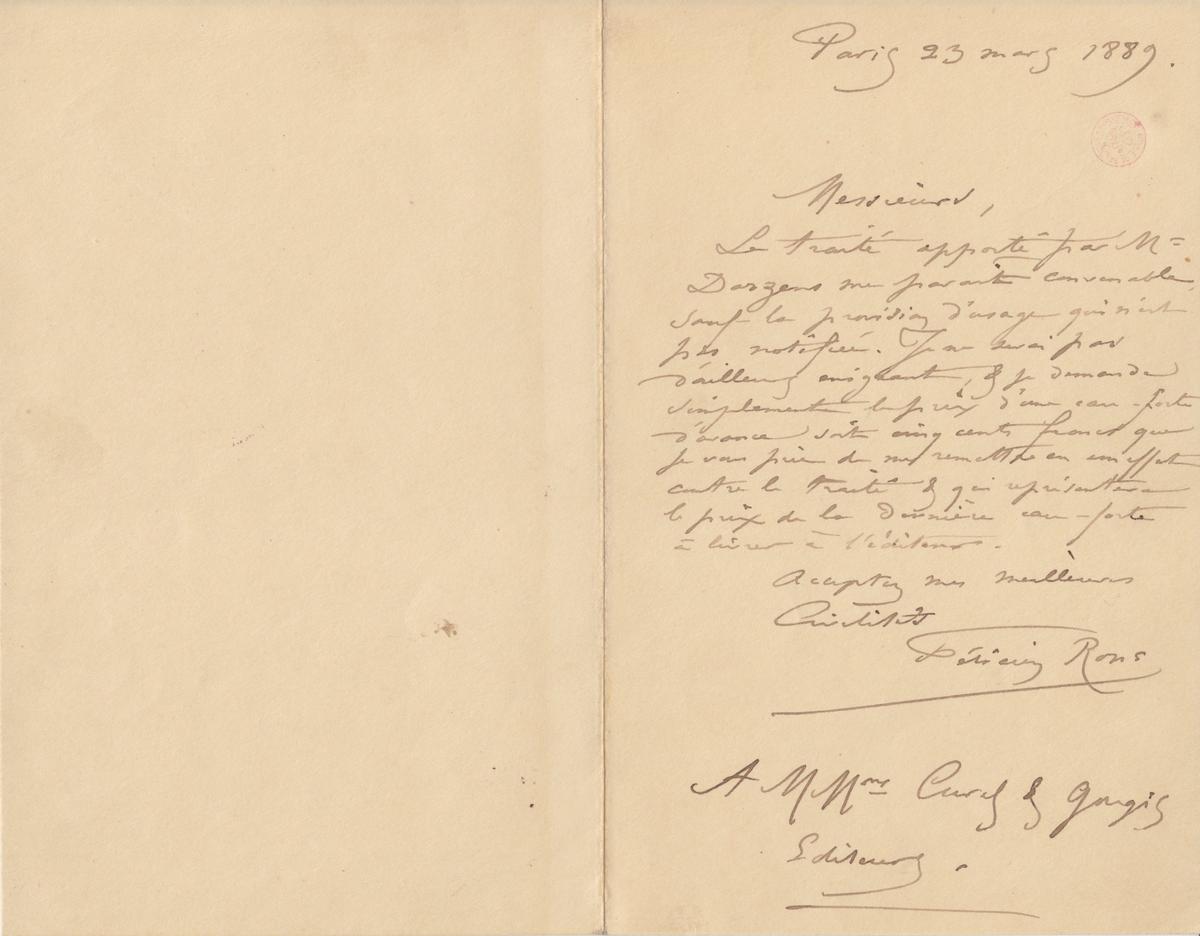 Paris 23 mars 1889.
Messieurs,
Le traité apporté par Mr
Darzens me parait convenable,
sauf la provision d'usage qui n'est
pas notifiée. Je ne serai pas
d'ailleurs exigeant, & je demande
simplement le prix d'une eau-forte
d'avance soit cinq cents francs que
je vous prie de me remettre en
contre le traité & qui représentera
le prix de la dernière eau-forte
à livrer à l'éditeur.
Acceptez mes meilleures
Civilités
Félicien Rops
A MMons & Gougis
Editeurs.